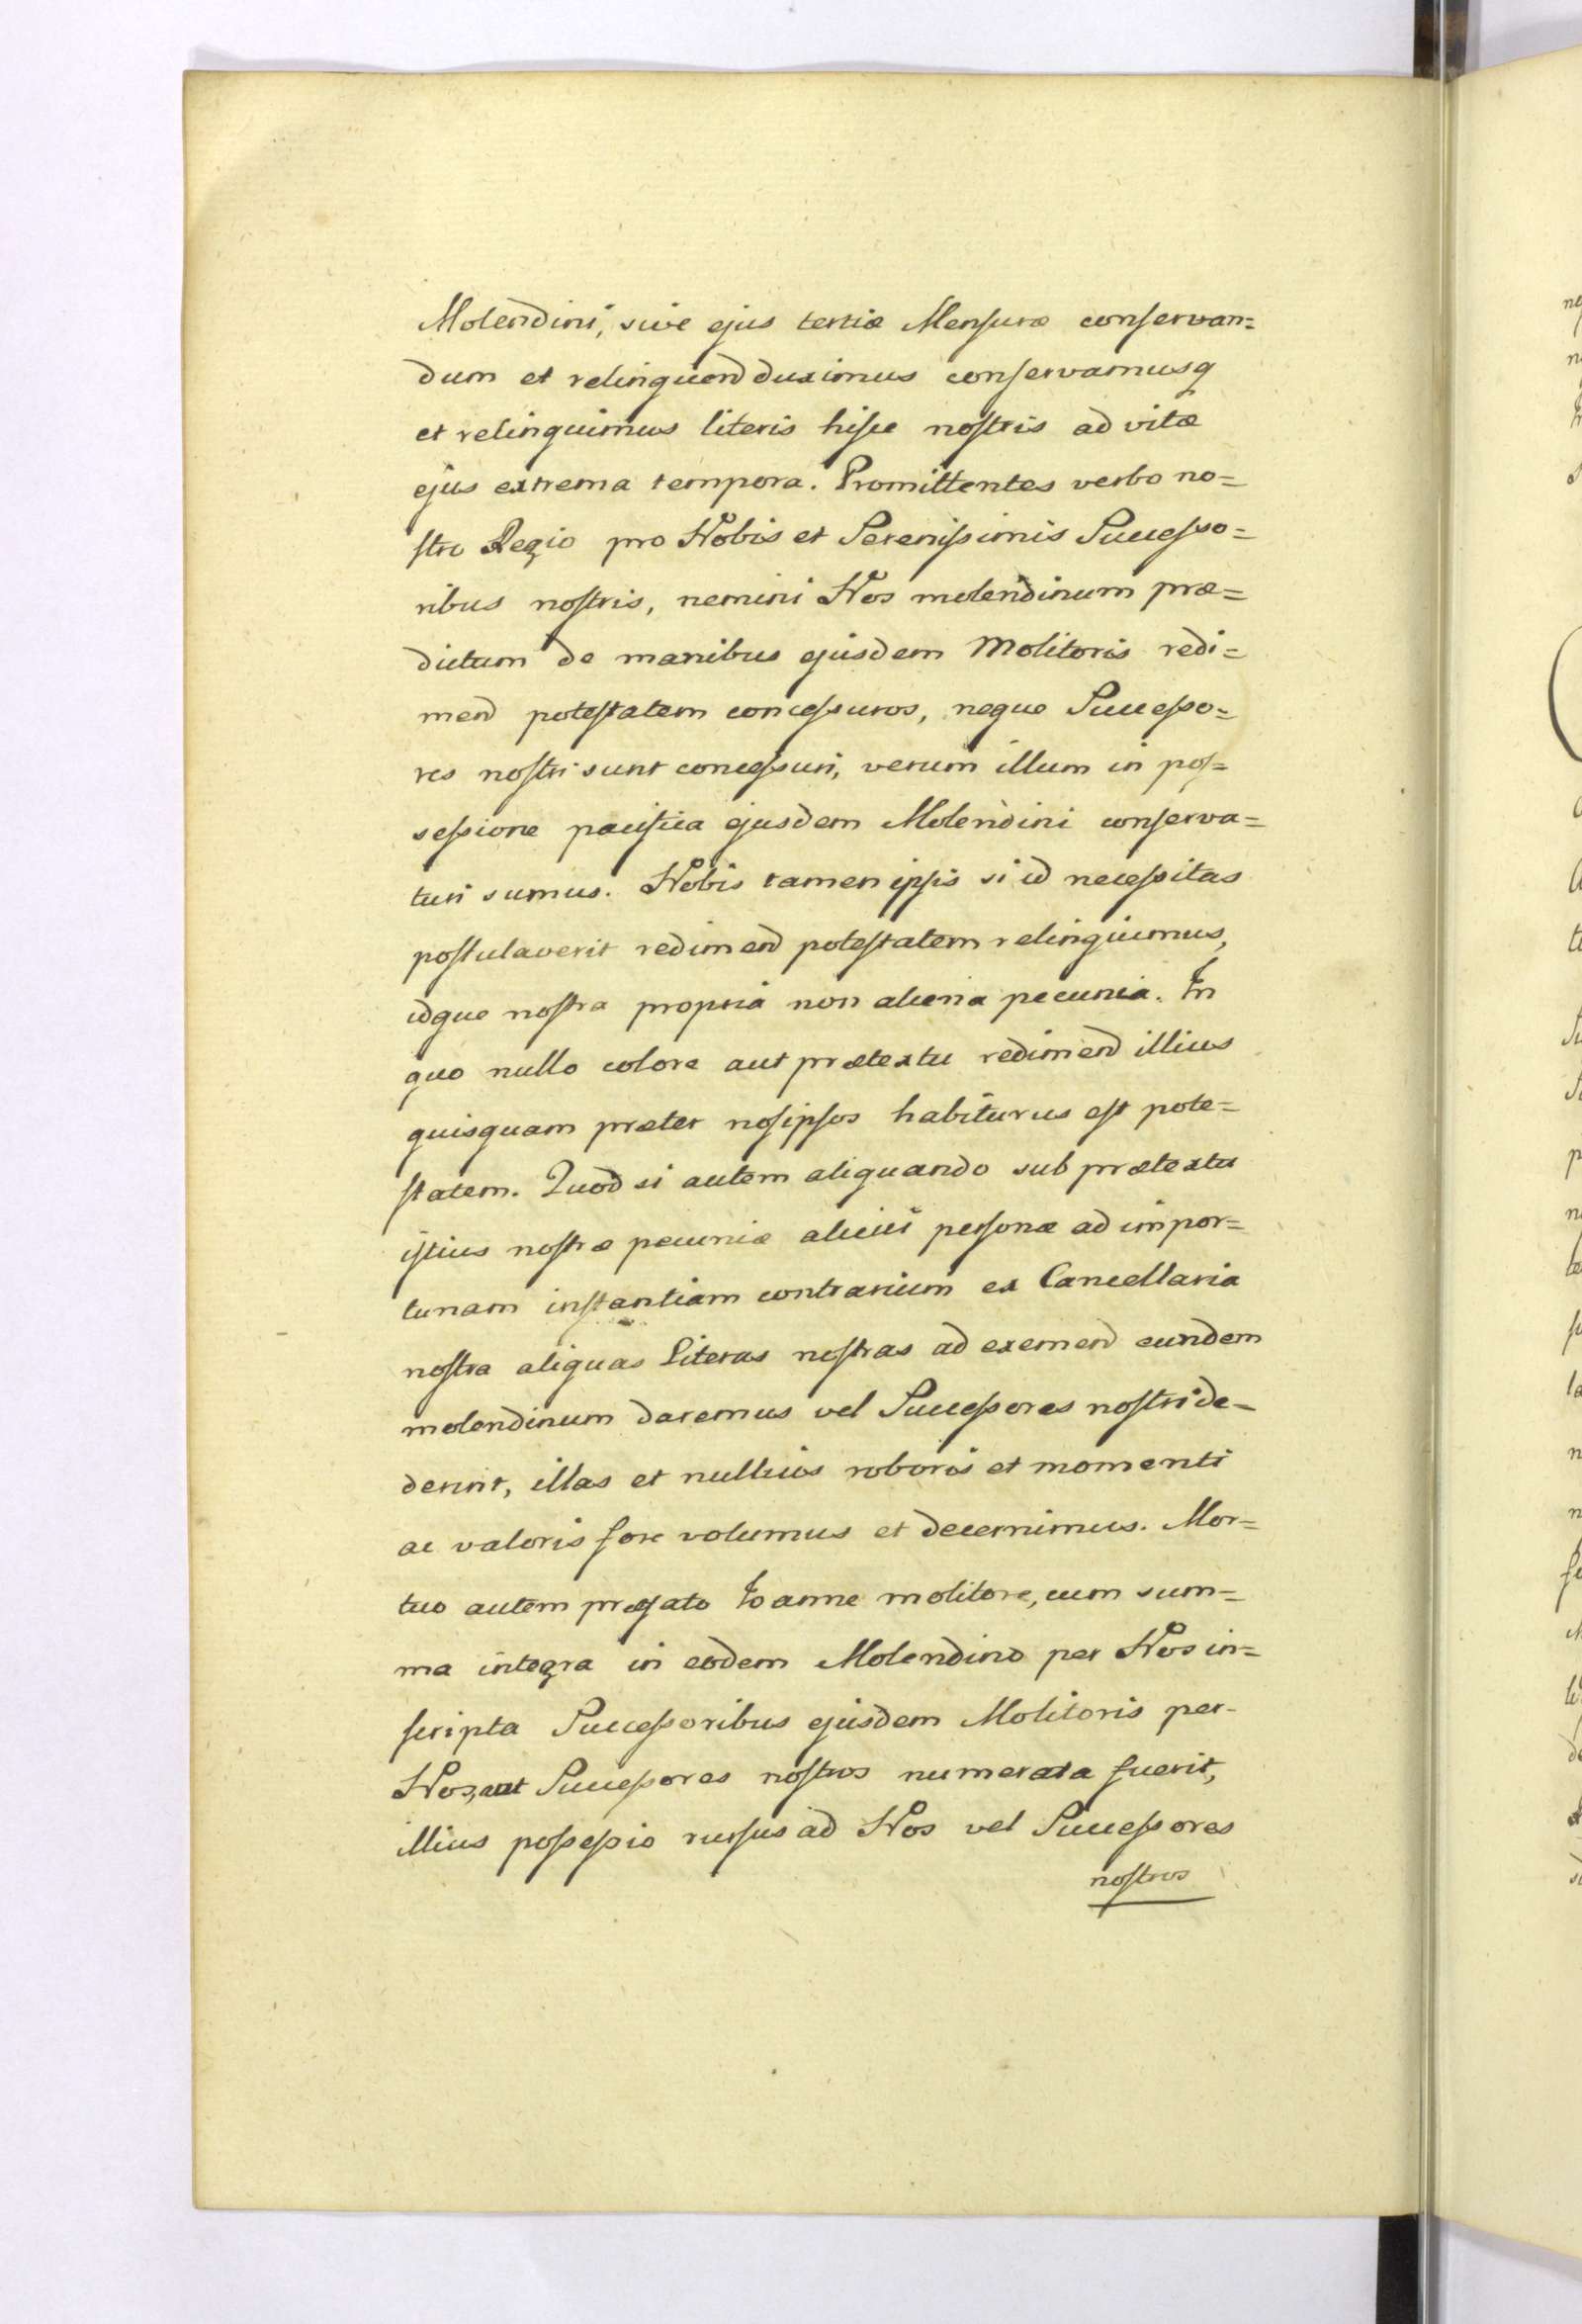 Molendini, sive ejus tertiæ Mensuræ conservan=
dum et relinquend duximus conservamusq
et relinquimus literis hisce nostris ad vitæ
ejus extrema tempora. Promittentes verbo no=
stro Regio pro Nobis et Serenissimis Successo=
ribus nostris, nemini Nos molendinum præ=
dictum de manibus ejusdem Molitoris redi=
mend potestatem concessuros, neque Successo=
res nostri sunt concessuri, verum illum in pos=
sessione pacifica ejusdem Molendini conserva=
turi sumus. Nobis tamen ipsis si id necessitas
postulaverit redimend potestatem relinquimus,
idque nostra propria non aliena pecunia. In
quo nullo colore aut prætextu redimend illius
quisquam præter nosipsos habiturus est pote=
statem. Quod si autem aliquando sub prætextu
istius nostræ pecuniæ alicui personæ ad impor=
tunam instantiam contrarium ex Cancellaria
nostra aliquas Literas nostras ad exemend eundem
molendinum daremus vel Successores nostri de-
derint, illas et nullius roboris et momenti
ac valoris fore volumus et decernimus. Mor=
tuo autem præfato Joanne molitore, cum sum=
ma integra in eodem Molendino per Nos in=
scripta Successoribus ejusdem Molitoris per-
Nos, aut Successores nostros numerata fuerit,
illius possessio rursus ad Nos vel Successores
nostros